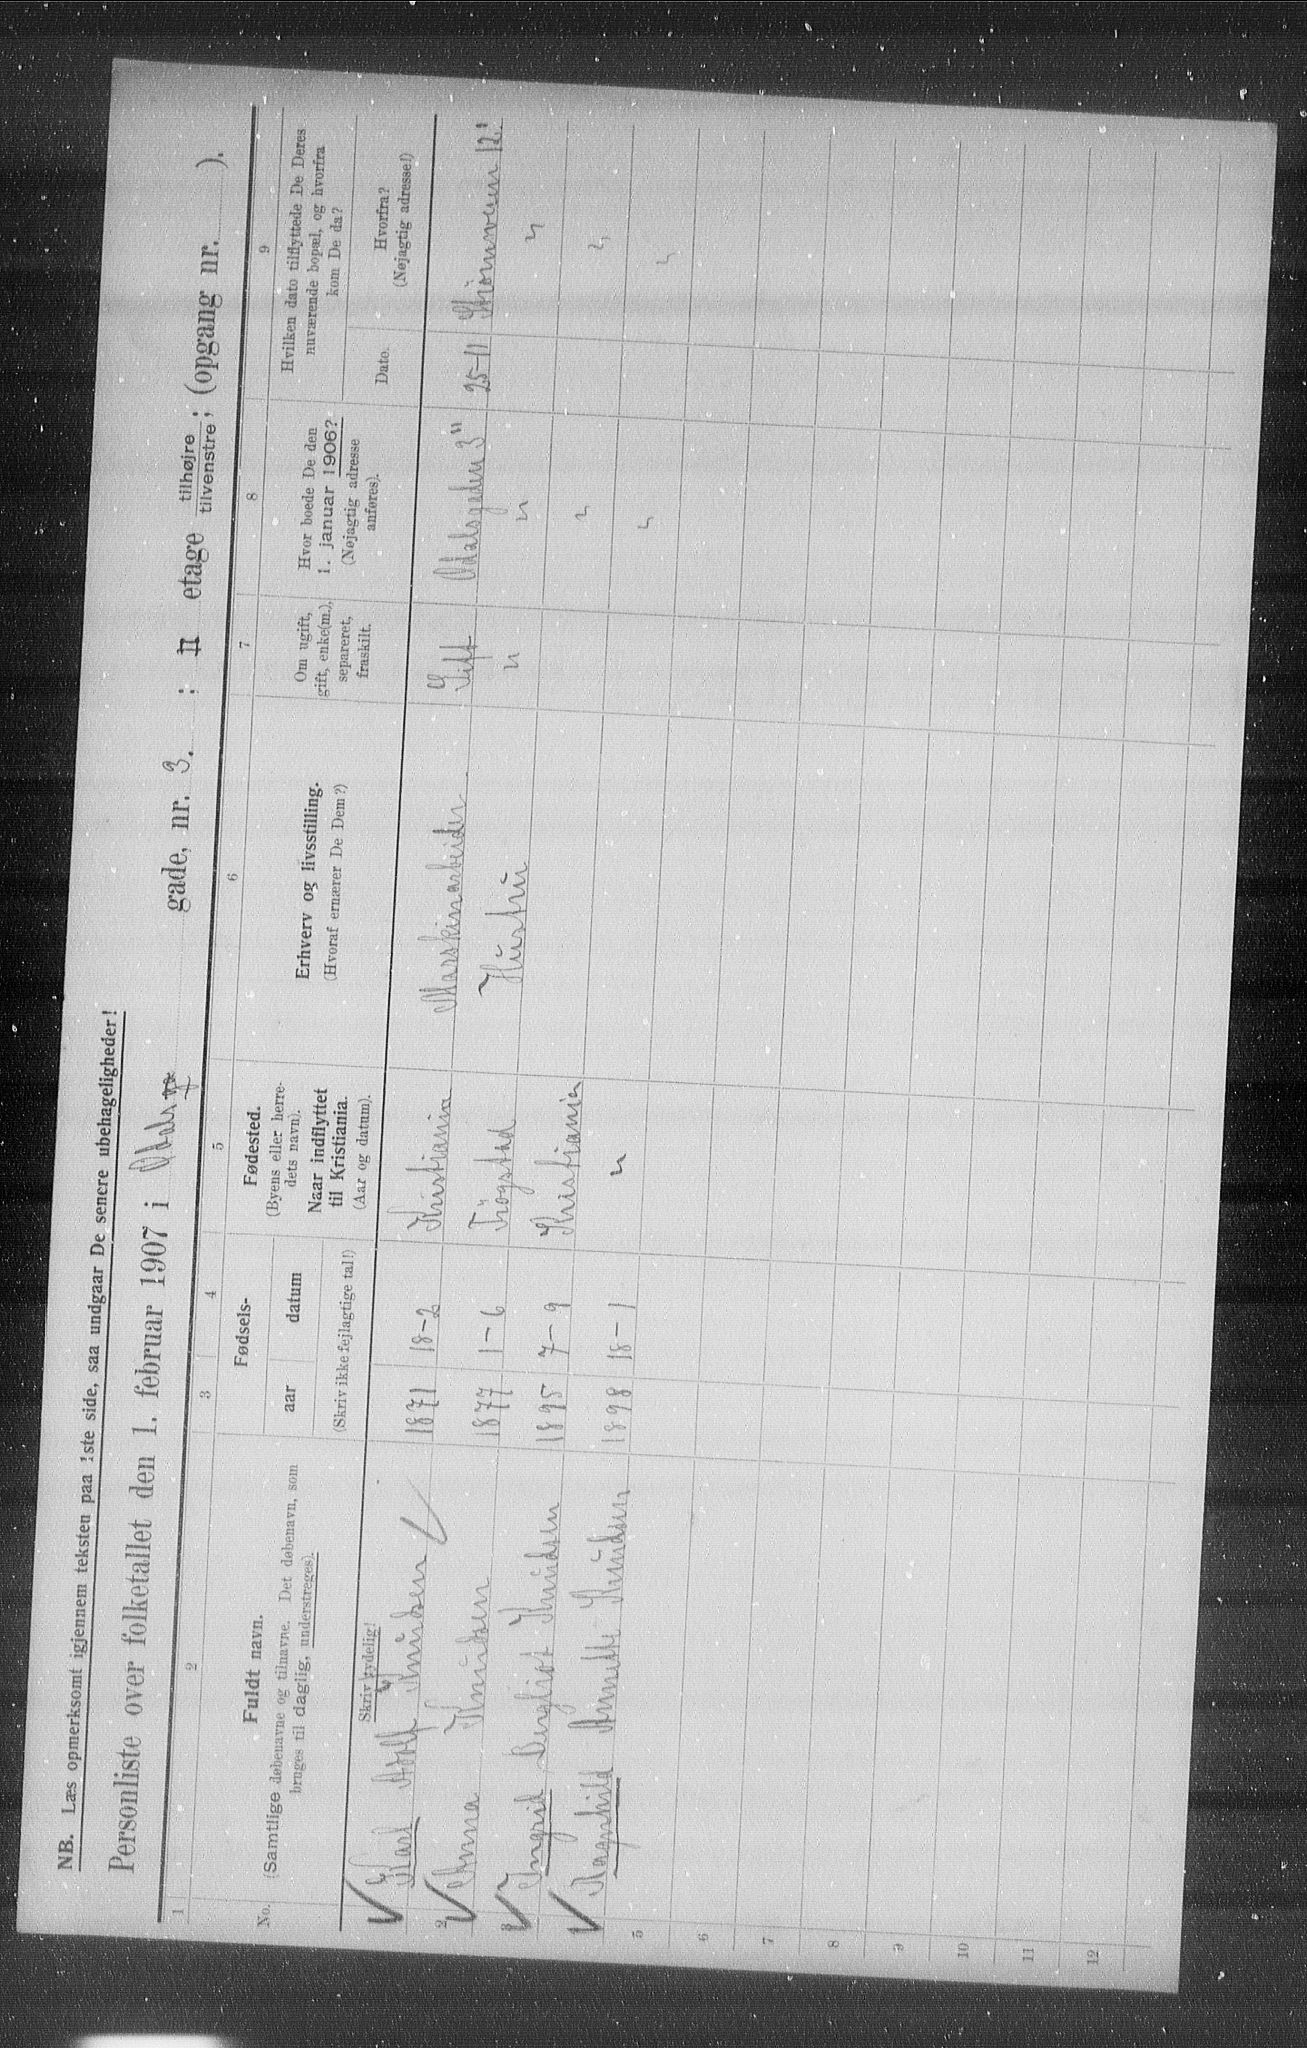 NB. Læs opmerksomt igjennem teksten paa 1ste side, saa undgaar De senere ubehageligheder!
Personliste over folketallet den 1. februar 1907 i Odals gade, nr. 3. ; II etage tilhøjre tilvenstre; (opgang nr. ).
1 2 3 4 5 6 7 8 9
No.
Fuldt navn.
(Samtlige døbenavne og tilnavne. Det døbenavn, som
bruges til daglig, understreges).
Skriv tydelig!
Fødsels-
aar datum
(Skriv ikke fejlagtige tal!)
Fødested.
(Byens eller herre-
dets navn).
Naar indflyttet
til Kristiania.
(Aar og datum).
Erhverv og livsstilling.
(Hvoraf ernærer De Dem?)
Om ugift,
gift, enke(m.),
separeret,
fraskilt.
Hvor boede De den
1. januar 1906?
(Nøjagtig adresse
anføres).
Hvilken dato tilflyttede De Deres
nuværende bopæl, og hvorfra
kom De da?
Dato.
Hvorfra?
(Nøjagtig adresse!)
Karl Adolf Knudsen 1871 18-2 Kristiania Maskinarbeider Gift Odalsgaden 3" 25-11
2 Anna Knudsen 1877 1-6 Trøgstad Hustru " " "
3 Ingrid Bergliot Knudsen 1895 7-9 Kristiania " "
Ragnhild Annette Knudsen 1898 18-1 " " "
5
6
7
8
9
10
11
12